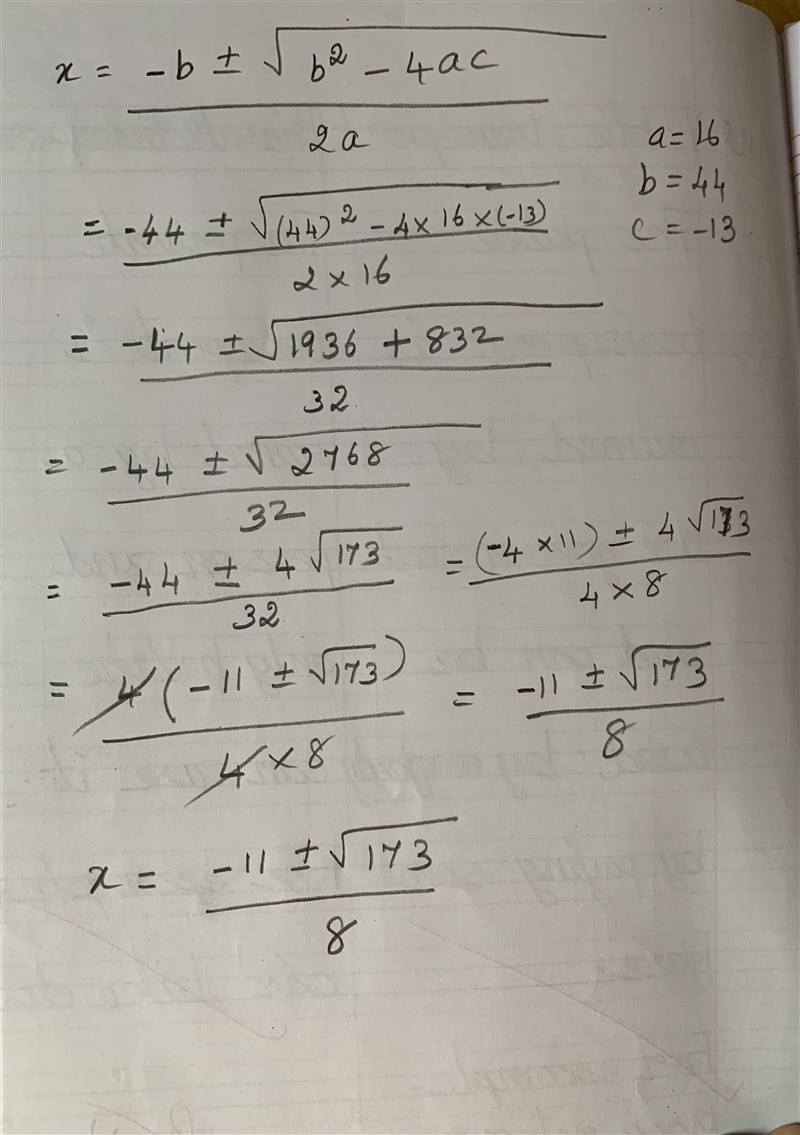 x = -b ± √(b² - 4ac) / 2a
a = 16
b = 44
c = -13
= -44 ± √((44)² - 4 × 16 × (-13)) / 2 × 16
= -44 ± √(1936 + 832) / 32
= -44 ± √2768 / 32
= -44 ± 4√173 / 32 = (-4 × 11) ± 4√173 / 4 × 8
= 4(-11 ± √173) / 4 × 8 = -11 ± √173 / 8
x = -11 ± √173 / 8